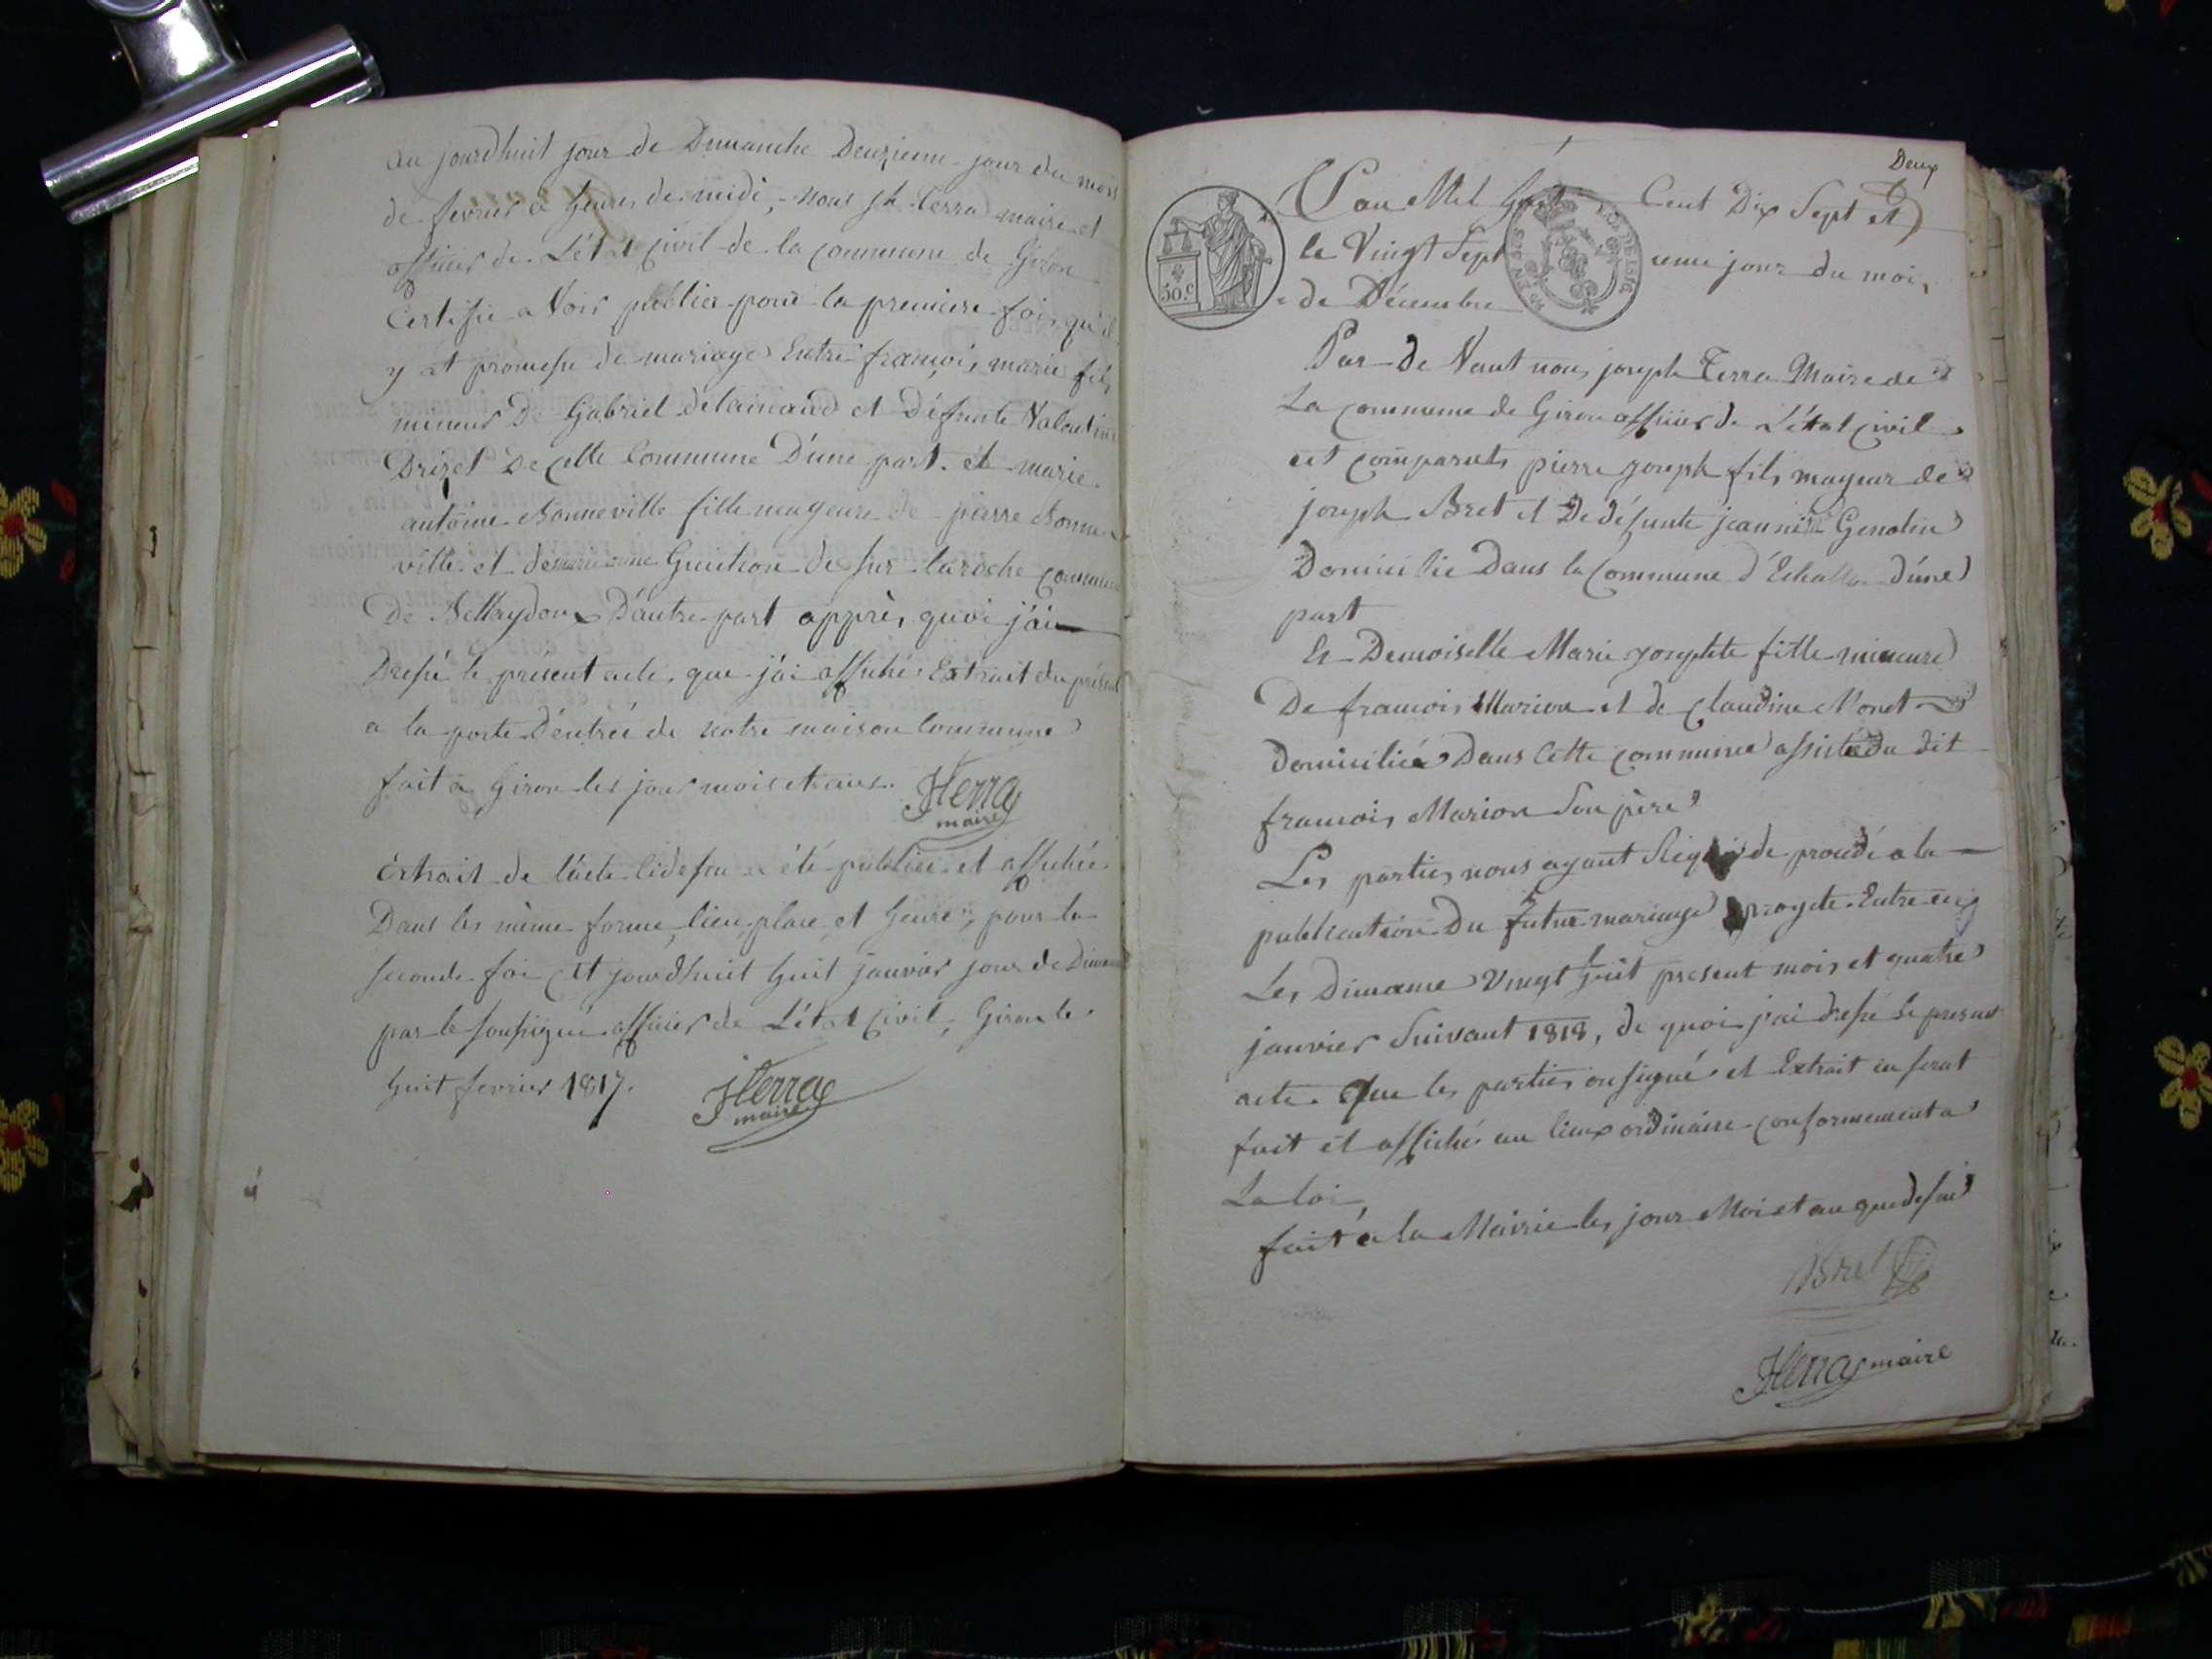 au jourdhuit jour de Dimanche Deuxieme jour du mois
de fevrier a heures de midi, nous jh terra maire et
officier de L'état Civil de la Commune de Giron
Certifie a Voir publier pour la premiere fois qu'il
y at promesse de mariage Entre françois marie fils
mineur D Gabriel delainaud et Défunte Valentine
Drizet De Cette Commune D'une part. et marie
antoine Bonneville fille mageure de pierre Bonne
ville et de marie anne de sur laroche Commune
De Bellaydoux D'autre part apprès quoi j'ai
Dressé le present acte, que j'ai affiché Extrait du présent
a la porte D'entrée de notre maison Commune
fait a Giron les jour mois et ans.
JTerra
maire
Extrait de l'acte cidesu a été publiée et affichée
Dans les même forme, lieu, place et heure, pour la
seconde foi Cet jourdhuit huit janvier jour de Dimanche
par le soussigné officier de L'état Civil, Giron le
huit fevrier 1817.
JTerra
maire
Deux
L'an Mil huit Cent Dix Sept et
le Vingt Sept ieme jour du mois
de Décembre
50.c
LOI DE 1816
Par-de Vant nous joseph Terra Maire de
La Commune de Giron officier de L'état Civil
est comparuts pierre joseph fils mageur de
joseph Bret et De défunte jeanne Genolin
Domicilie Dans la Commune d'Echallon d'une
part
Et Demoiselle Marie josephte fille mineure
De francois Marion et de Claudine Monet
domiciliée Dans Cette commune assistée du dit
francois Marion Son père
Les parties nous ayant Requis de proudé a la
publication Du futur mariage proyete Entre eux
Les Dimane Vingt huit present mois et quatre
janvier Suivant 1818, de quoi j'ai dressé le present
acte. Que les parties on signé et Extrait en serat
fait et affiché au lieux ordinaire conformement a
La loi,
fait a la Mairie les jour Moi et an que desu
Bret
JTerra maire